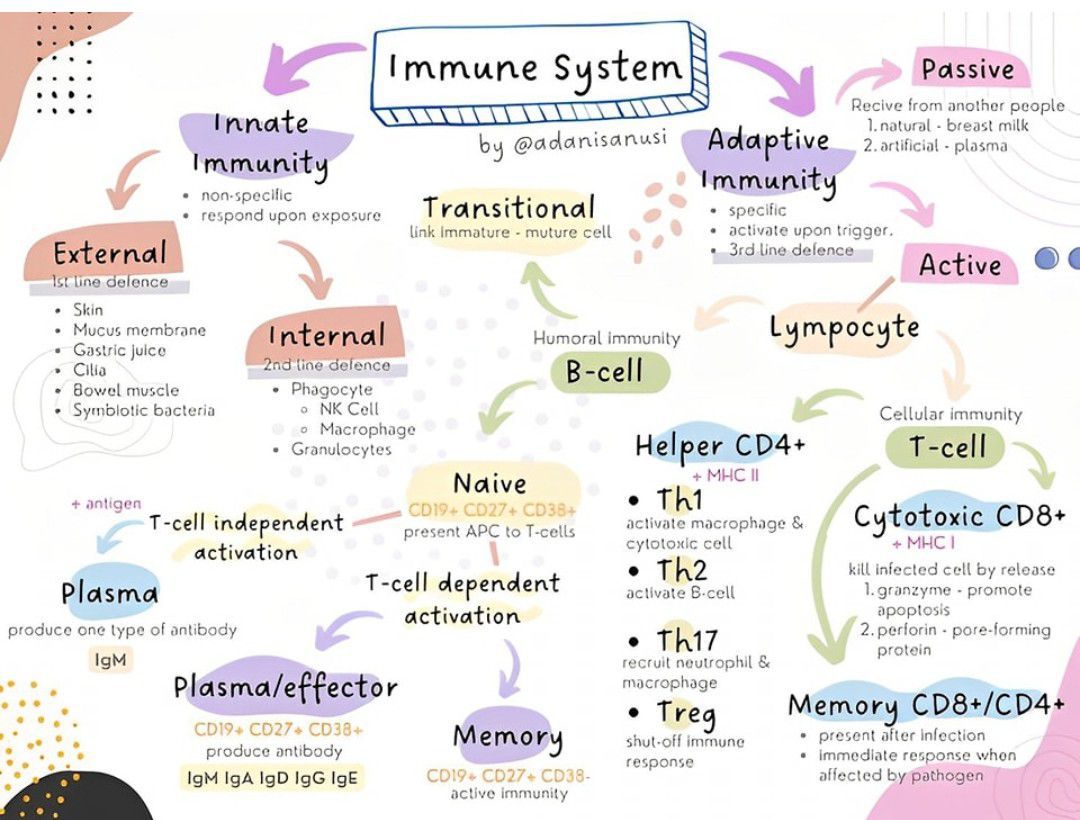 Immune System
by @adanisanusi
Innate
Immunity
• non-specific
• respond upon exposure
External
1st line defence
• Skin
• Mucus membrane
• Gastric juice
• Cilia
• Bowel muscle
• Symbiotic bacteria
Internal
2nd line defence
• Phagocyte
○ NK Cell
○ Macrophage
• Granulocytes
Adaptive
Immunity
• specific
• activate upon trigger.
• 3rd line defence
Passive
Recive from another people
1. natural - breast milk
2. artificial - plasma
Active
Lympocyte
Humoral immunity
B-cell
Transitional
link immature - muture cell
Naive
CD19+ CD27+ CD38+
present APC to T-cells
T-cell independent
activation
+ antigen
Plasma
produce one type of antibody
IgM
T-cell dependent
activation
Plasma/effector
CD19+ CD27+ CD38+
produce antibody
IgM IgA IgD IgG IgE
Memory
CD19+ CD27+ CD38-
active immunity
Cellular immunity
T-cell
Helper CD4+
+ MHC II
• Th1
activate macrophage &
cytotoxic cell
• Th2
activate B-cell
• Th17
recruit neutrophil &
macrophage
• Treg
shut-off immune
response
Cytotoxic CD8+
+ MHC I
kill infected cell by release
1. granzyme - promote
apoptosis
2. perforin - pore-forming
protein
Memory CD8+/CD4+
• present after infection
• immediate response when
affected by pathogen